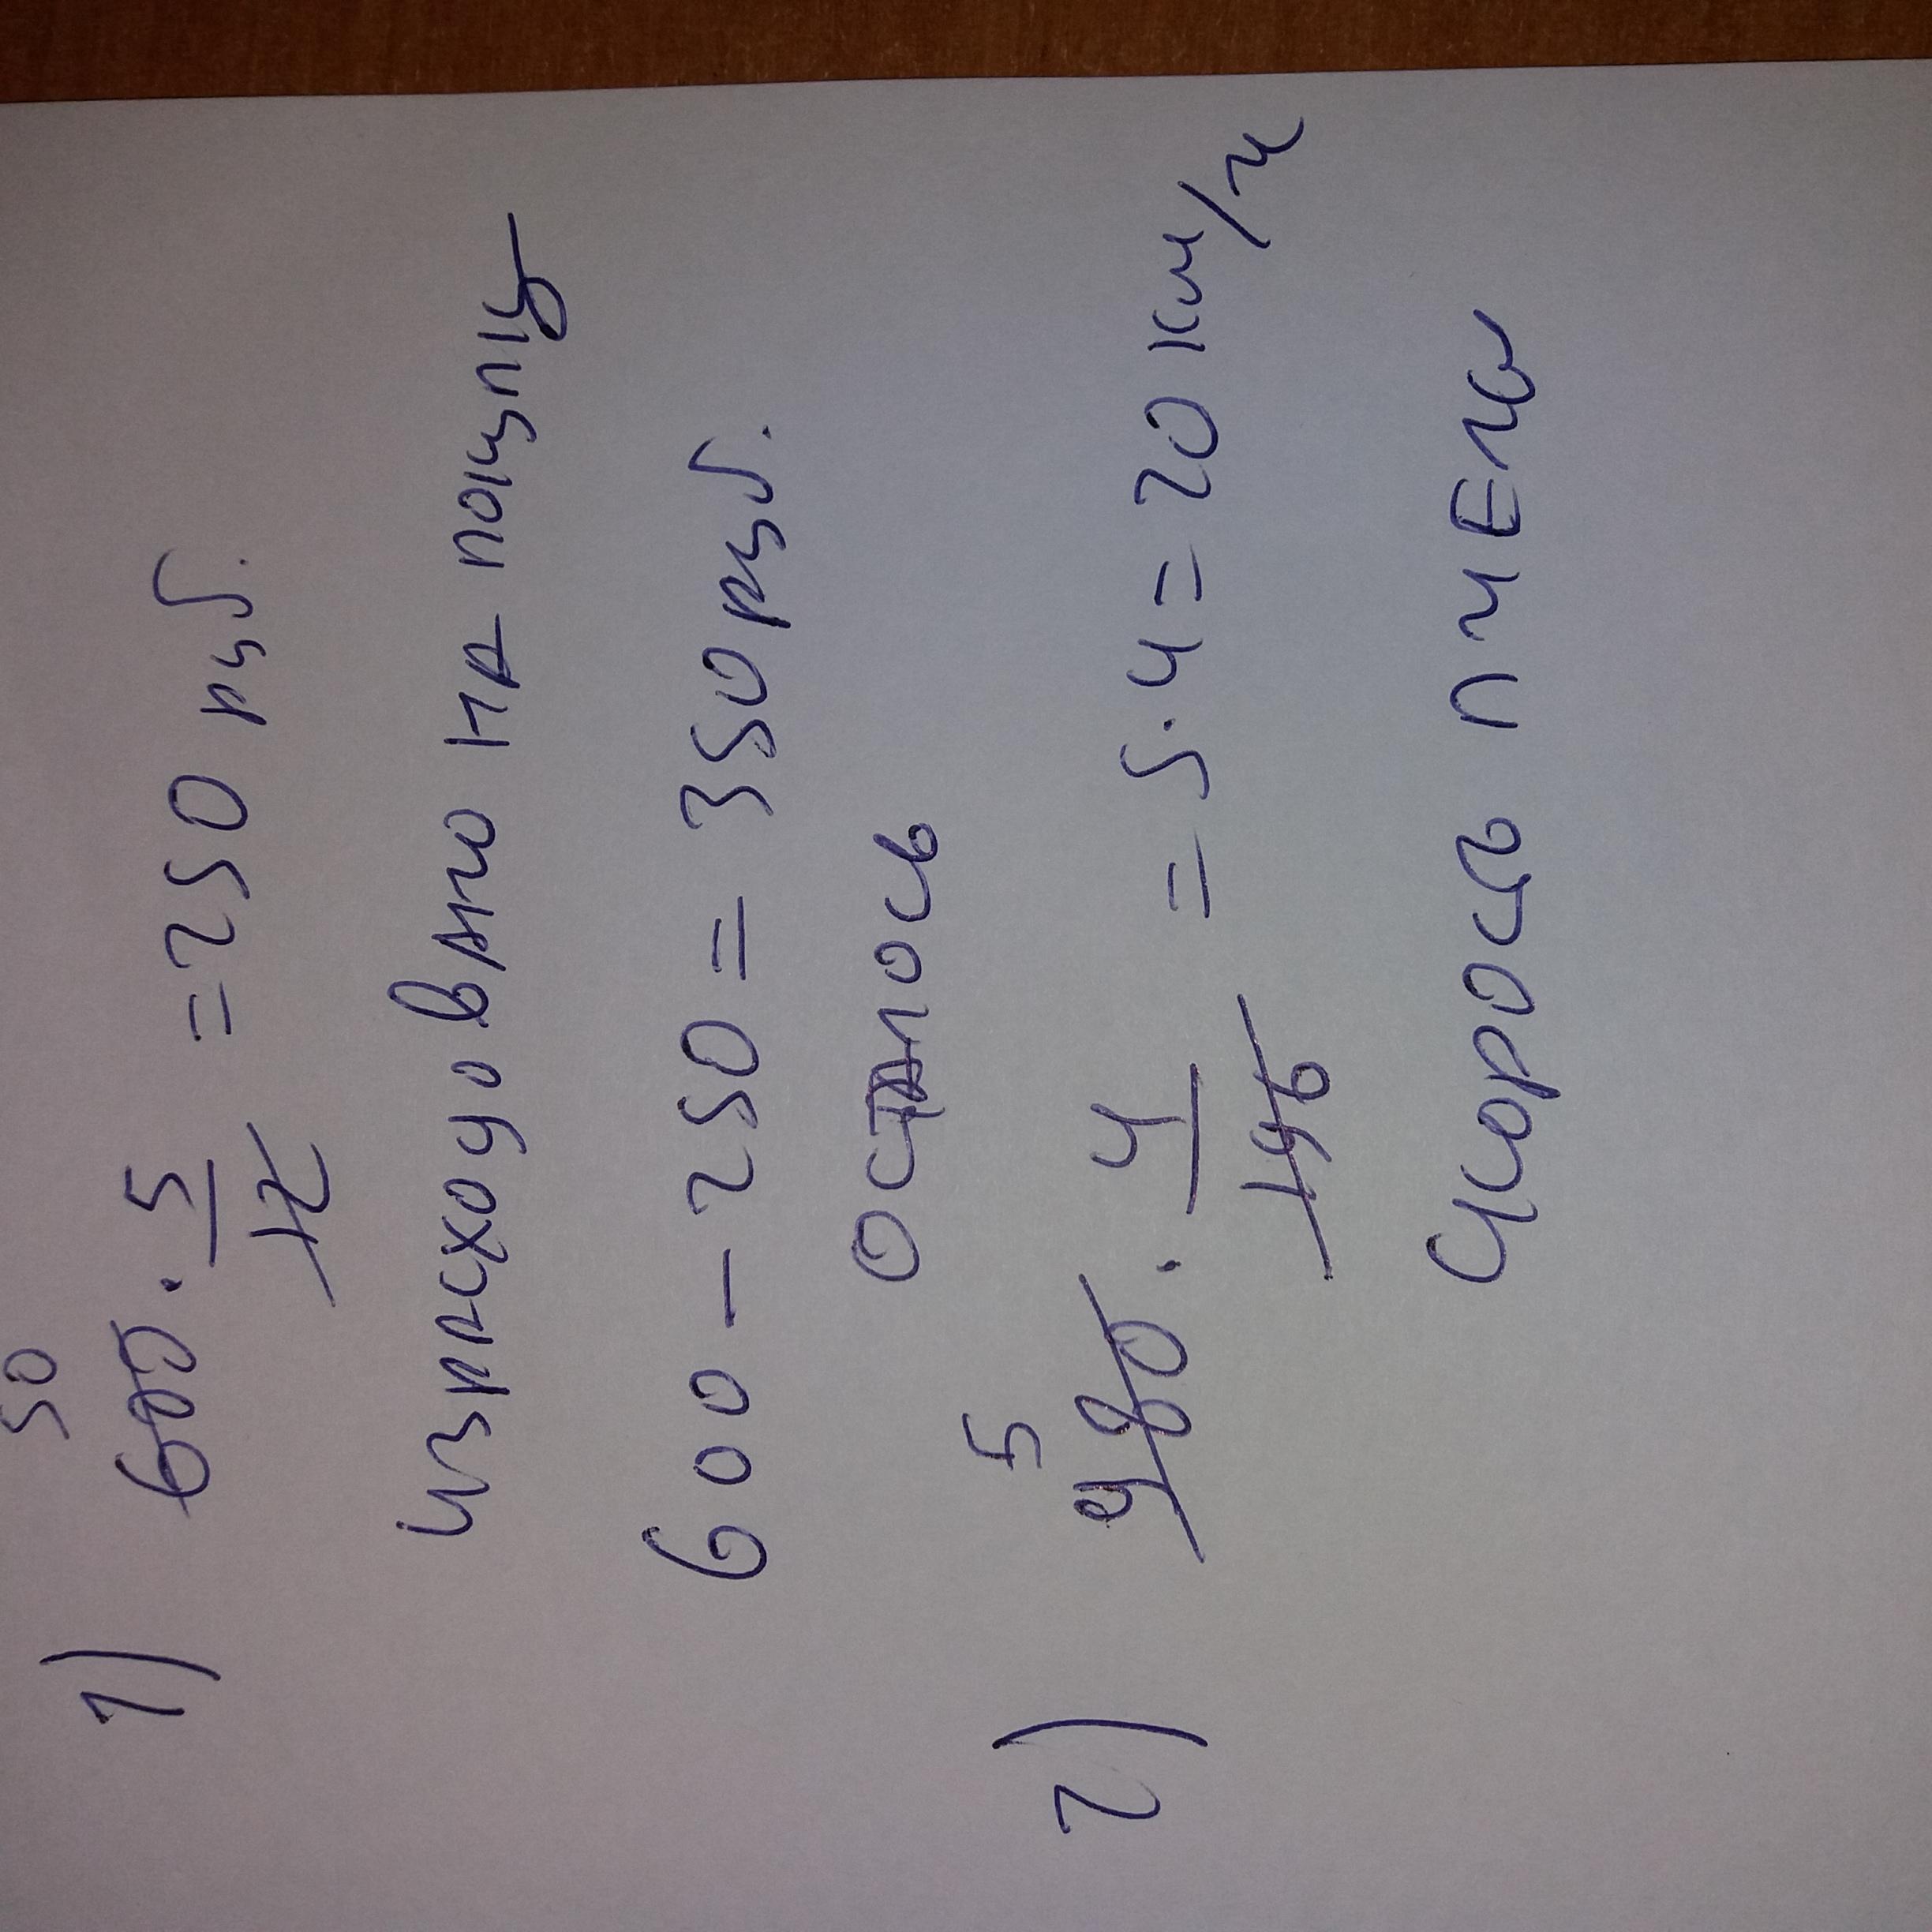 50
1) 600 · 5/12 = 250 руб.
израсходовано на покупку
600 - 250 = 350 руб.
осталось
5
2) 980 · 4/196 = 5·4 = 20 км/ч
скорость пчелы